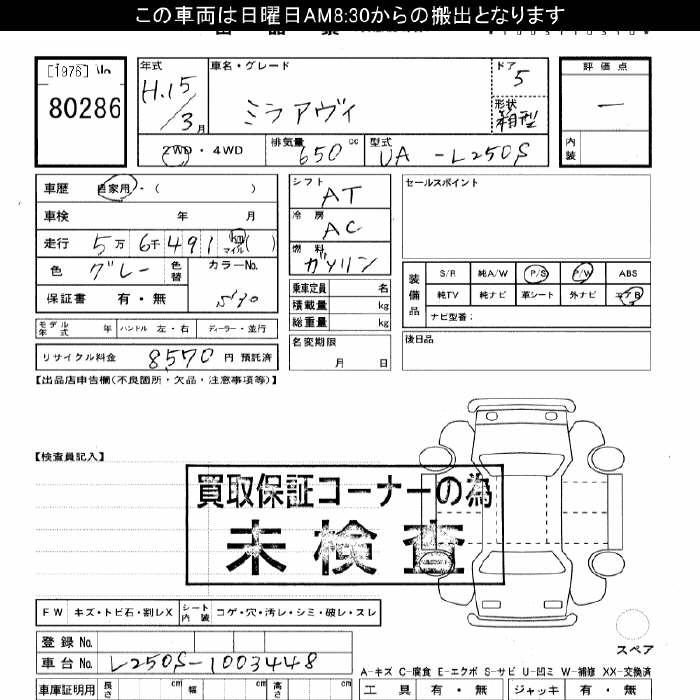 この車両は日曜日AM8:30からの搬出となります
[1976]
80286
年式 H.15/3月
車名・グレード ミラアヴィ
ドア 5
形状 箱型
評価点 ー
内装
2WD・4WD
排気量 650cc
型式 UA-L250S
車歴 自家用・( )
車検 年 月
走行 5万6千491km マイル( )
色 グレー 色替 カラーNo. S30
保証書 有・無
シフト AT
冷房 AC
燃料 ガソリン
乗車定員 名
積載量 kg
総重量 kg
名変期限 月 日
セールスポイント
装備品 S/R 純A/W P/S P/W ABS
純TV 純ナビ 革シート 外ナビ エアB
ナビ型番:
後日品
モデル年式 年 ハンドル 左・右 ディーラー・並行
リサイクル料金 8570 円 預託済
【出品店申告欄(不良箇所・欠品・注意事項等)】
【検査員記入】
買取保証コーナーの為
未検査
FW キズ・トビ石・割レX シート内装 コゲ・穴・汚レ・シミ・破レ・スレ
スペア
登録No.
車台No. L250S-1003448
A-キズ C-腐食 E-エクボ S-サビ U-凹ミ W-補修 XX-交換済
車庫証明用 長さ cm 幅 cm 高さ cm
工具 有・無 ジャッキ 有・無